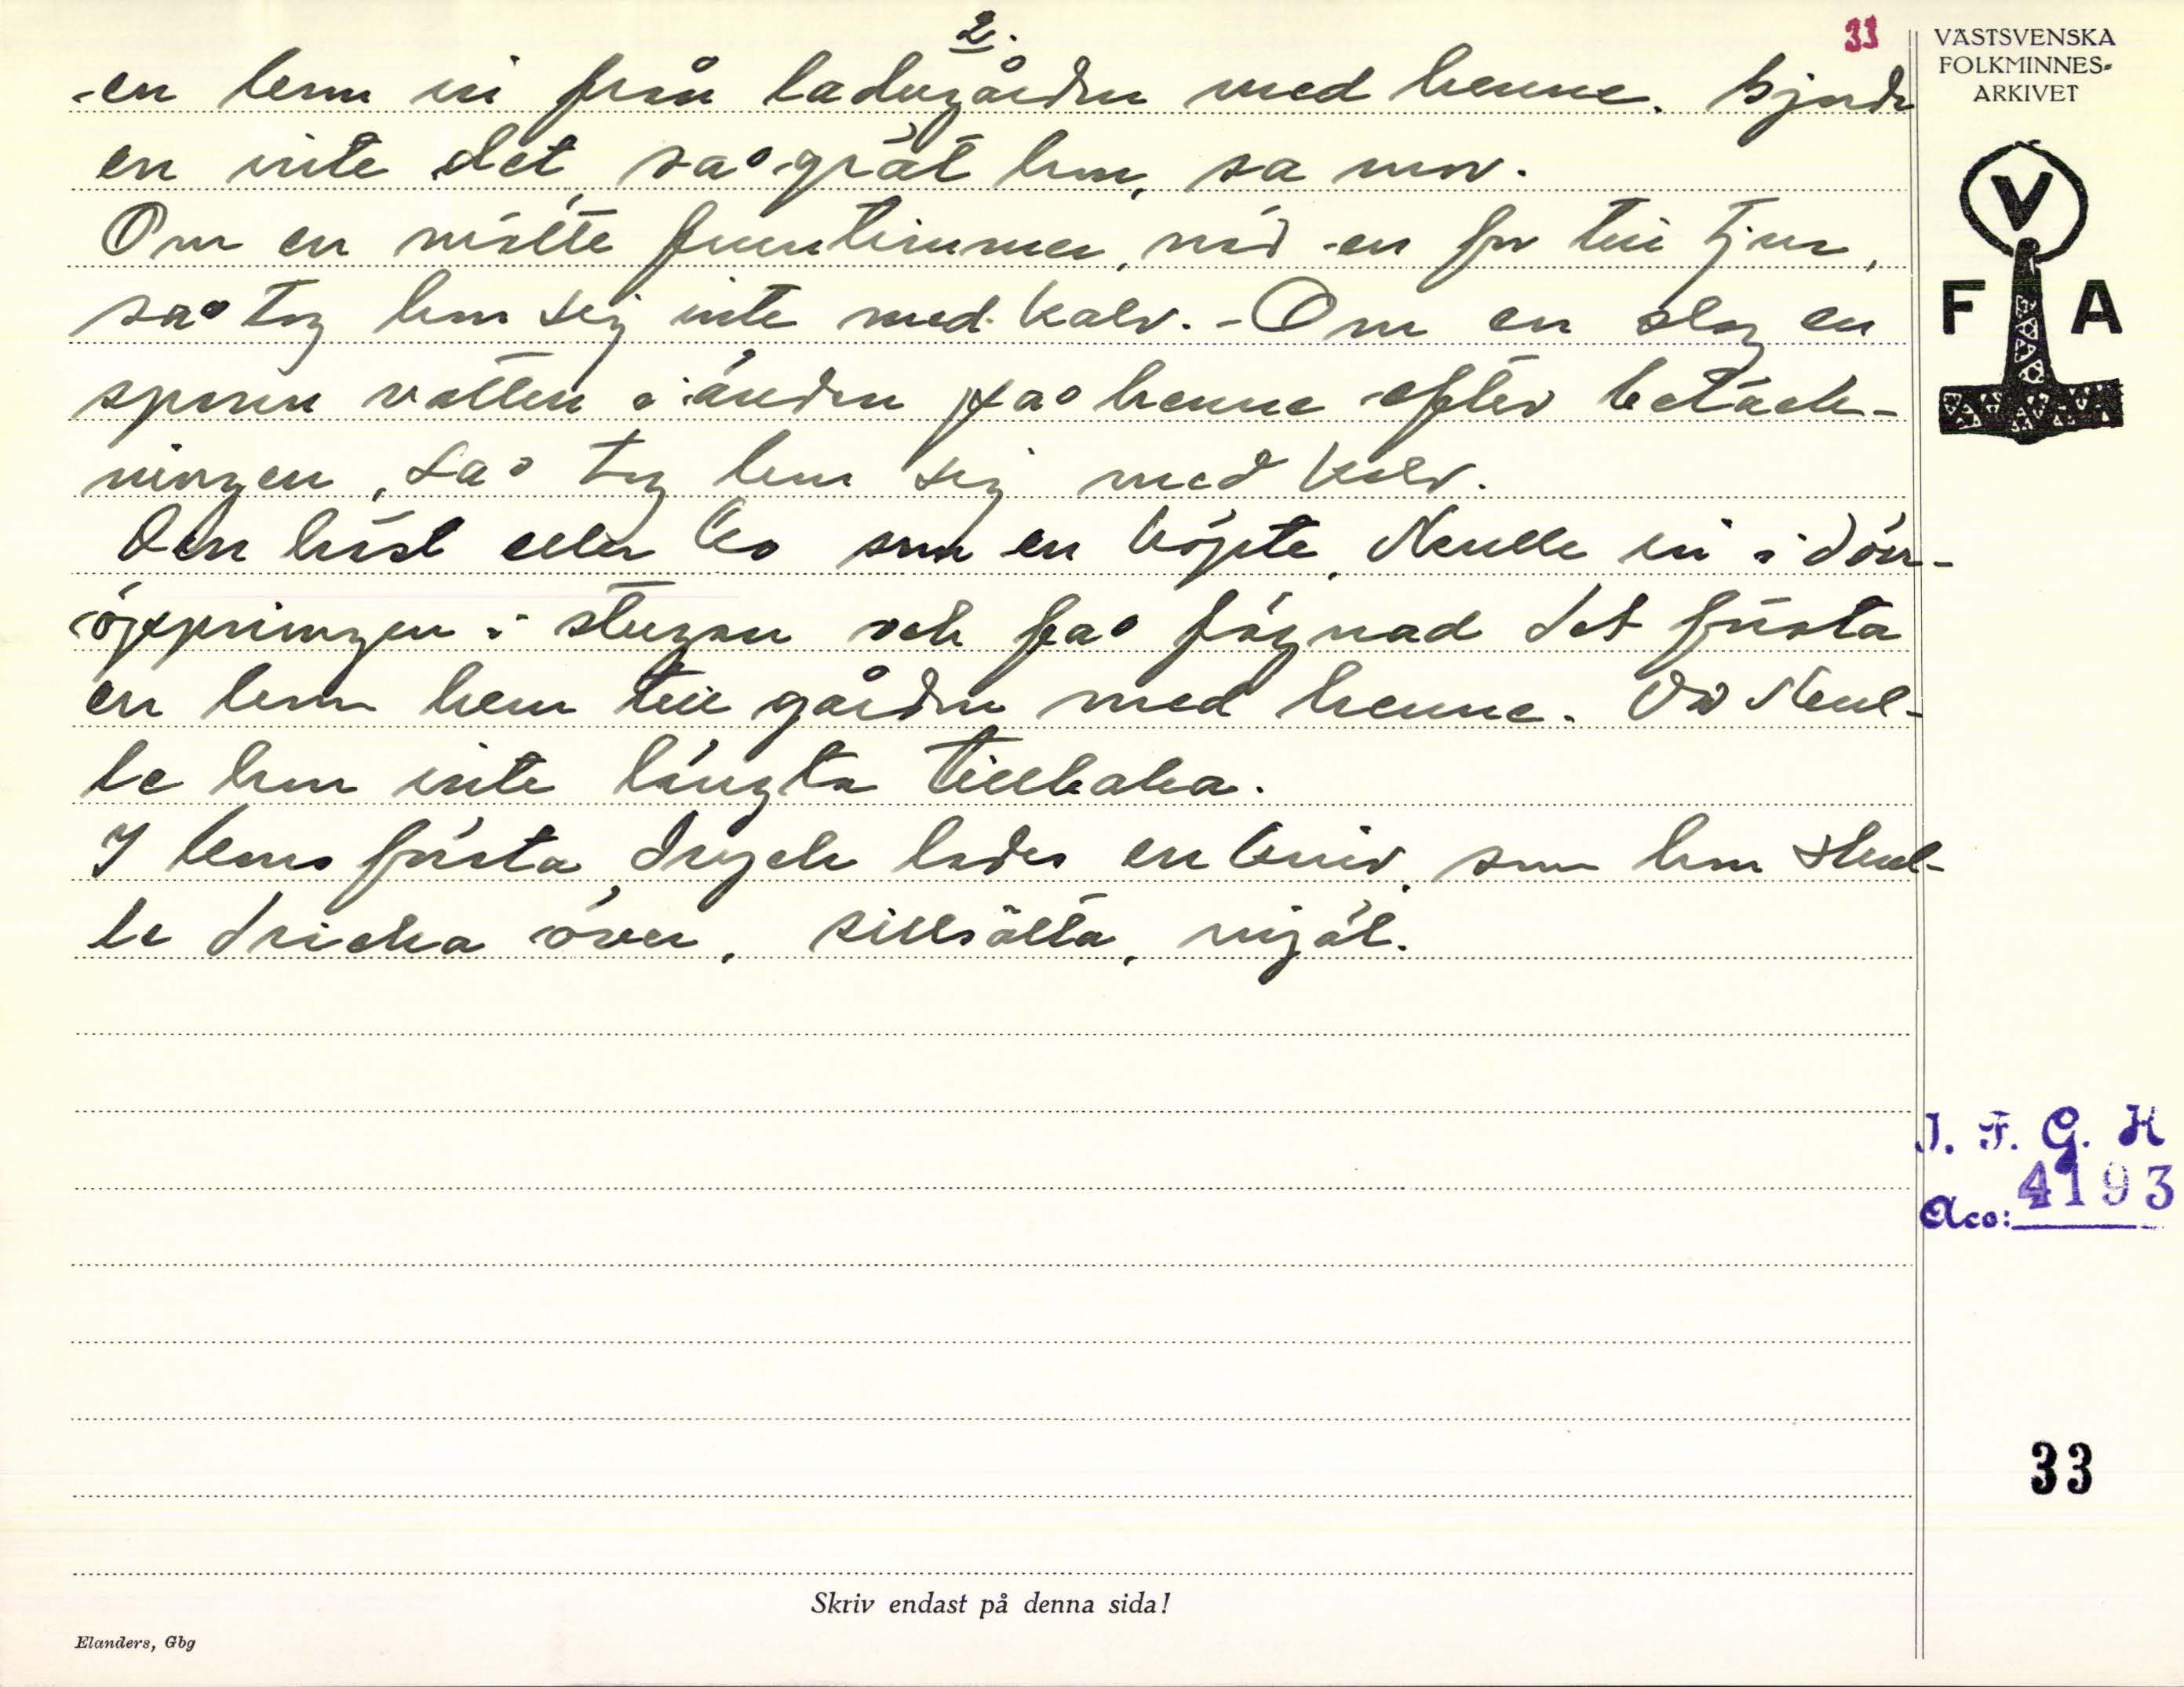 2.
33
-en kom in från ladugården med henne. Gjorde
en inte det, så grät hon, sa mor.
Om en mötte fruntimmer, när en for till tjur,
så tog hon sej inte med kalv. - Om en slog en
spann vatten i ändan på henne efter betäck-
ningen, så tog hon sej med kalv.
Den häst eller ko som en köpte, skulle in i dörr-
öppningen i stugan och få fägnad det första
en kom hem till gården med henne. Då skul-
le hon inte längta tillbaka.
I kons första dryck lades en kniv, som hon skul-
le dricka över, sillsälta, mjöl.
VÄSTSVENSKA
FOLKMINNES-
ARKIVET
V
F A
I. F. G. H
Acc: 4193
33
Skriv endast på denna sida!
Elanders, Gbg